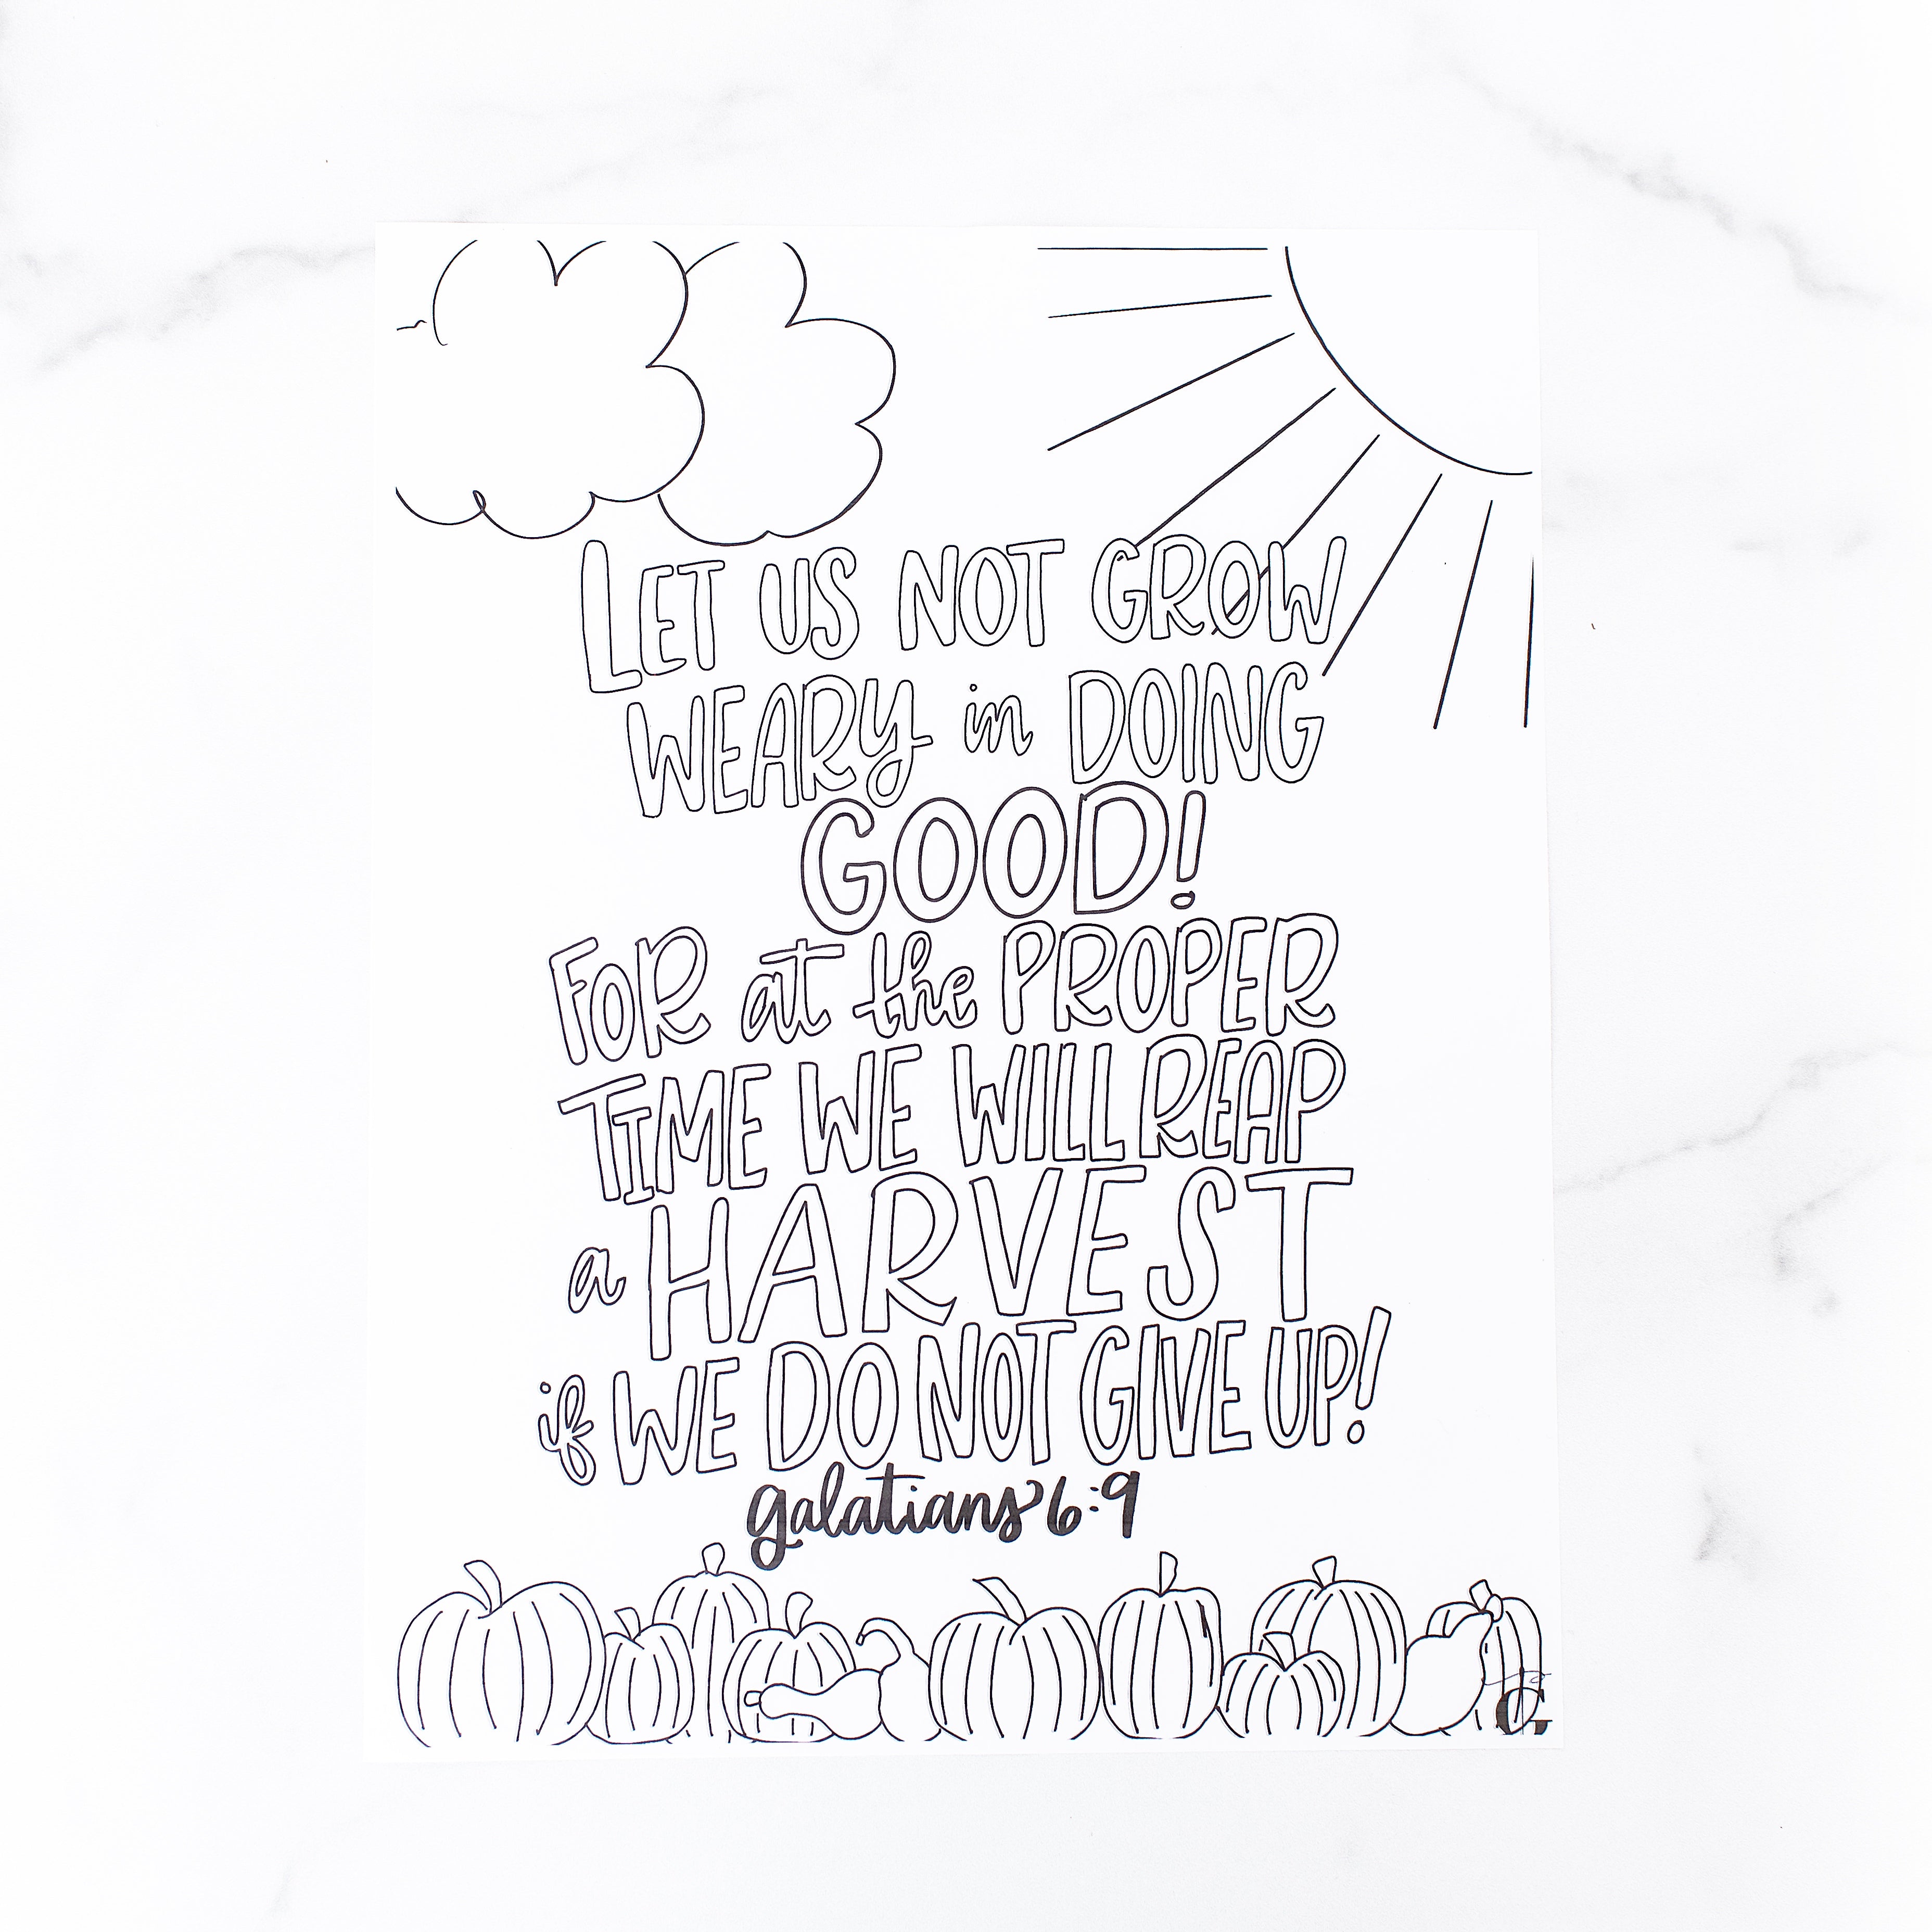 LET US NOT GROW
WEARY in DOING
GOOD!
FOR at the PROPER
TIME WE WILL REAP
a HARVEST
if WE DO NOT GIVE UP!
galatians 6:9